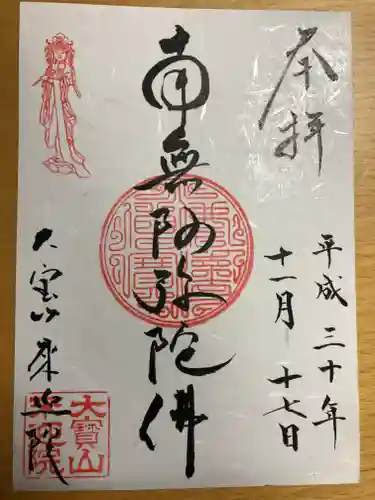 奉拝
平成三十年
十一月十七日
南無阿弥陀佛
大宝山来迎院
大寳山
来迎院